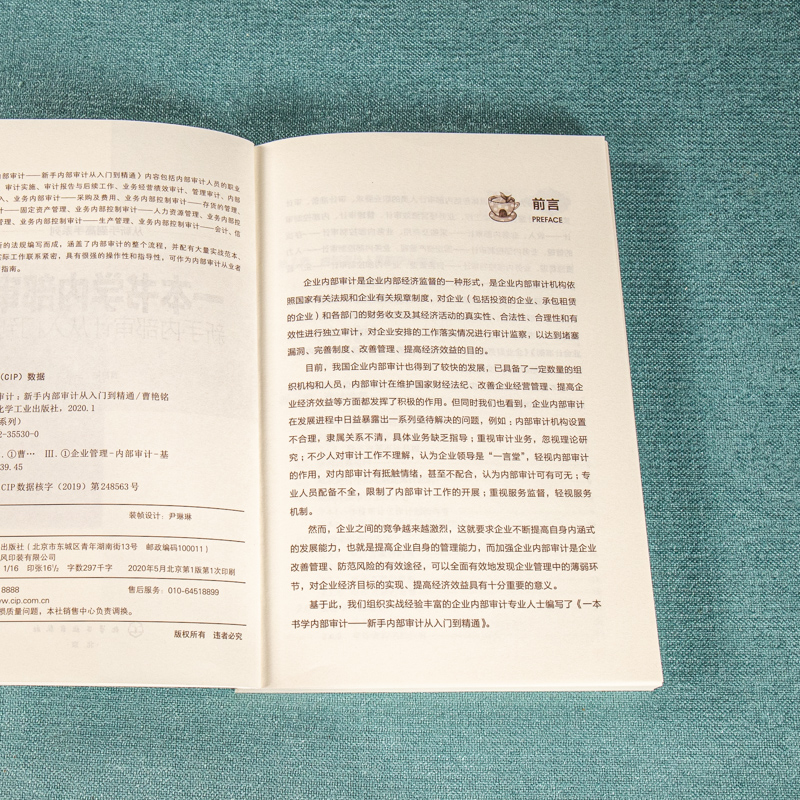 内部审计——新手内部审计从入门到精通》内容包括内部审计人员的职业
审计实施、审计报告与后续工作、业务经营绩效审计、管理审计、内部
入、业务内部控制审计——采购及费用、业务内部控制审计——存货的管理、
——固定资产管理、业务内部控制审计——人力资源管理、业务内部控
管理、业务内部控制审计——生产管理、业务内部控制审计——会计、信
的法规编写而成，涵盖了内部审计的整个流程，并配有大量实战范本、
实际工作联系紧密，具有很强的操作性和指导性，可作为内部审计从业者
指南。
（CIP）数据
审计：新手内部审计从入门到精通/曹艳铭
化学工业出版社，2020.1
系列）
2-35530-0
.①曹… Ⅲ.①企业管理-内部审计-基
39.45
CIP数据核字（2019）第248563号
装帧设计：尹琳琳
出版社（北京市东城区青年湖南街13号 邮政编码100011）
风印装有限公司
1/16 印张16½ 字数297千字 2020年5月北京第1版第1次印刷
8888 售后服务：010-64518899
www.cip.com.cn
损质量问题，本社销售中心负责调换。
版权所有 违者必究
前言
PREFACE
企业内部审计是企业内部经济监督的一种形式，是企业内部审计机构依
照国家有关法规和企业有关规章制度，对企业（包括投资的企业、承包租赁
的企业）和各部门的财务收支及其经济活动的真实性、合法性、合理性和有
效性进行独立审计，对企业安排的工作落实情况进行审计监察，以达到堵塞
漏洞、完善制度、改善管理、提高经济效益的目的。
目前，我国企业内审计也得到了较快的发展，已具备了一定数量的组
织机构和人员，内部审计在维护国家财经法纪、改善企业经营管理、提高企
业经济效益等方面都发挥了积极的作用。但同时我们也看到，企业内部审计
在发展进程中日益暴露出一系列亟待解决的问题，例如：内部审计机构设置
不合理，隶属关系不清，具体业务缺乏指导；重视审计业务，忽视理论研
究；不少人对审计工作不理解，认为企业领导是“一言堂”，轻视内部审计
的作用，对内部审计有抵触情绪，甚至不配合，认为内部审计可有可无；专
业人员配备不全，限制了内部审计工作的开展；重视服务监督，轻视服务
机制。
然而，企业之间的竞争越来越激烈，这就要求企业不断提高自身内涵式
的发展能力，也就是提高企业自身的管理能力，而加强企业内部审计是企业
改善管理、防范风险的有效途径，可以全面有效地发现企业管理中的薄弱环
节，对企业经济目标的实现、提高经济效益具有十分重要的意义。
基于此，我们组织实战经验丰富的企业内部审计专业人士编写了《一本
书学内部审计——新手内部审计从入门到精通》。